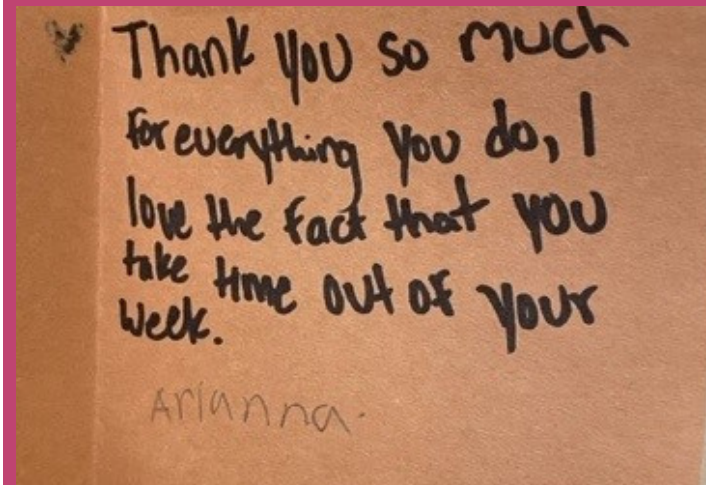 Thank you so much
for everything you do, I
love the fact that you
take time out of your
week.
Arianna.